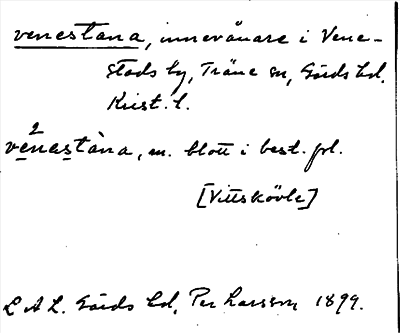 venestana, innevånare i Vene-
stads by, Träne sn, Gärds hd.
Krist. l.
2
venestàna, m. blott i best. pl.
[Vittskövle]
L A L. Gärds hd, Per Larsson 1899.